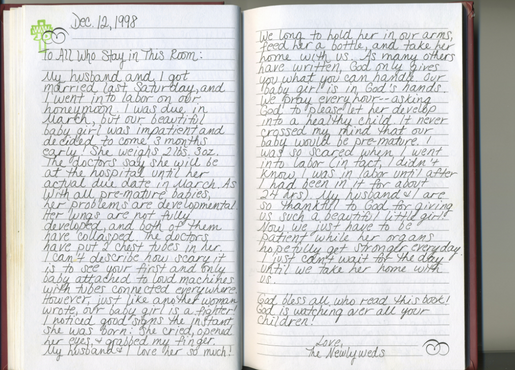 Dec. 12, 1998
To All Who Stay in This Room:
My husband and I got
married last Saturday, and
I went into labor on our
honeymoon. I was due in
March, but our beautiful
baby girl was impatient and
decided to come 3 months
early! She weighs 2 lbs. 3 oz.
The doctors say she will be
at the hospital until her
actual due date in March. As
with all pre-mature babies,
her problems are developmental.
Her lungs are not fully
developed, and both of them
have collapsed. The doctors
have put 2 chest tubes in her.
I can't describe how scary it
is to see your first and only
baby attached to loud machines
with tubes connected everywhere.
However, just like another woman
wrote, our baby girl is a fighter!
I noticed good signs the instant
she was born: She cried, opened
her eyes, & grabbed my finger.
My husband & I love her so much!
We long to hold her in our arms,
feed her a bottle, and take her
home with us. As many others
have written, God only gives
you what you can handle. Our
baby girl is in God's hands.
We pray every hour--asking
God to please let her develop
into a healthy child. It never
crossed my mind that our
baby would be pre-mature. I
was so scared when I went
into labor (in fact, I didn't
know I was in labor until after
I had been in it for about
24 hrs). My husband & I are
so thankful to God for giving
us such a beautiful little girl!
Now we just have to be
patient while her organs
hopefully get stronger everyday.
I just can't wait for the day
until we take her home with
us.
God bless all who read this book!
God is watching over all your
children!
Love,
The Newlyweds